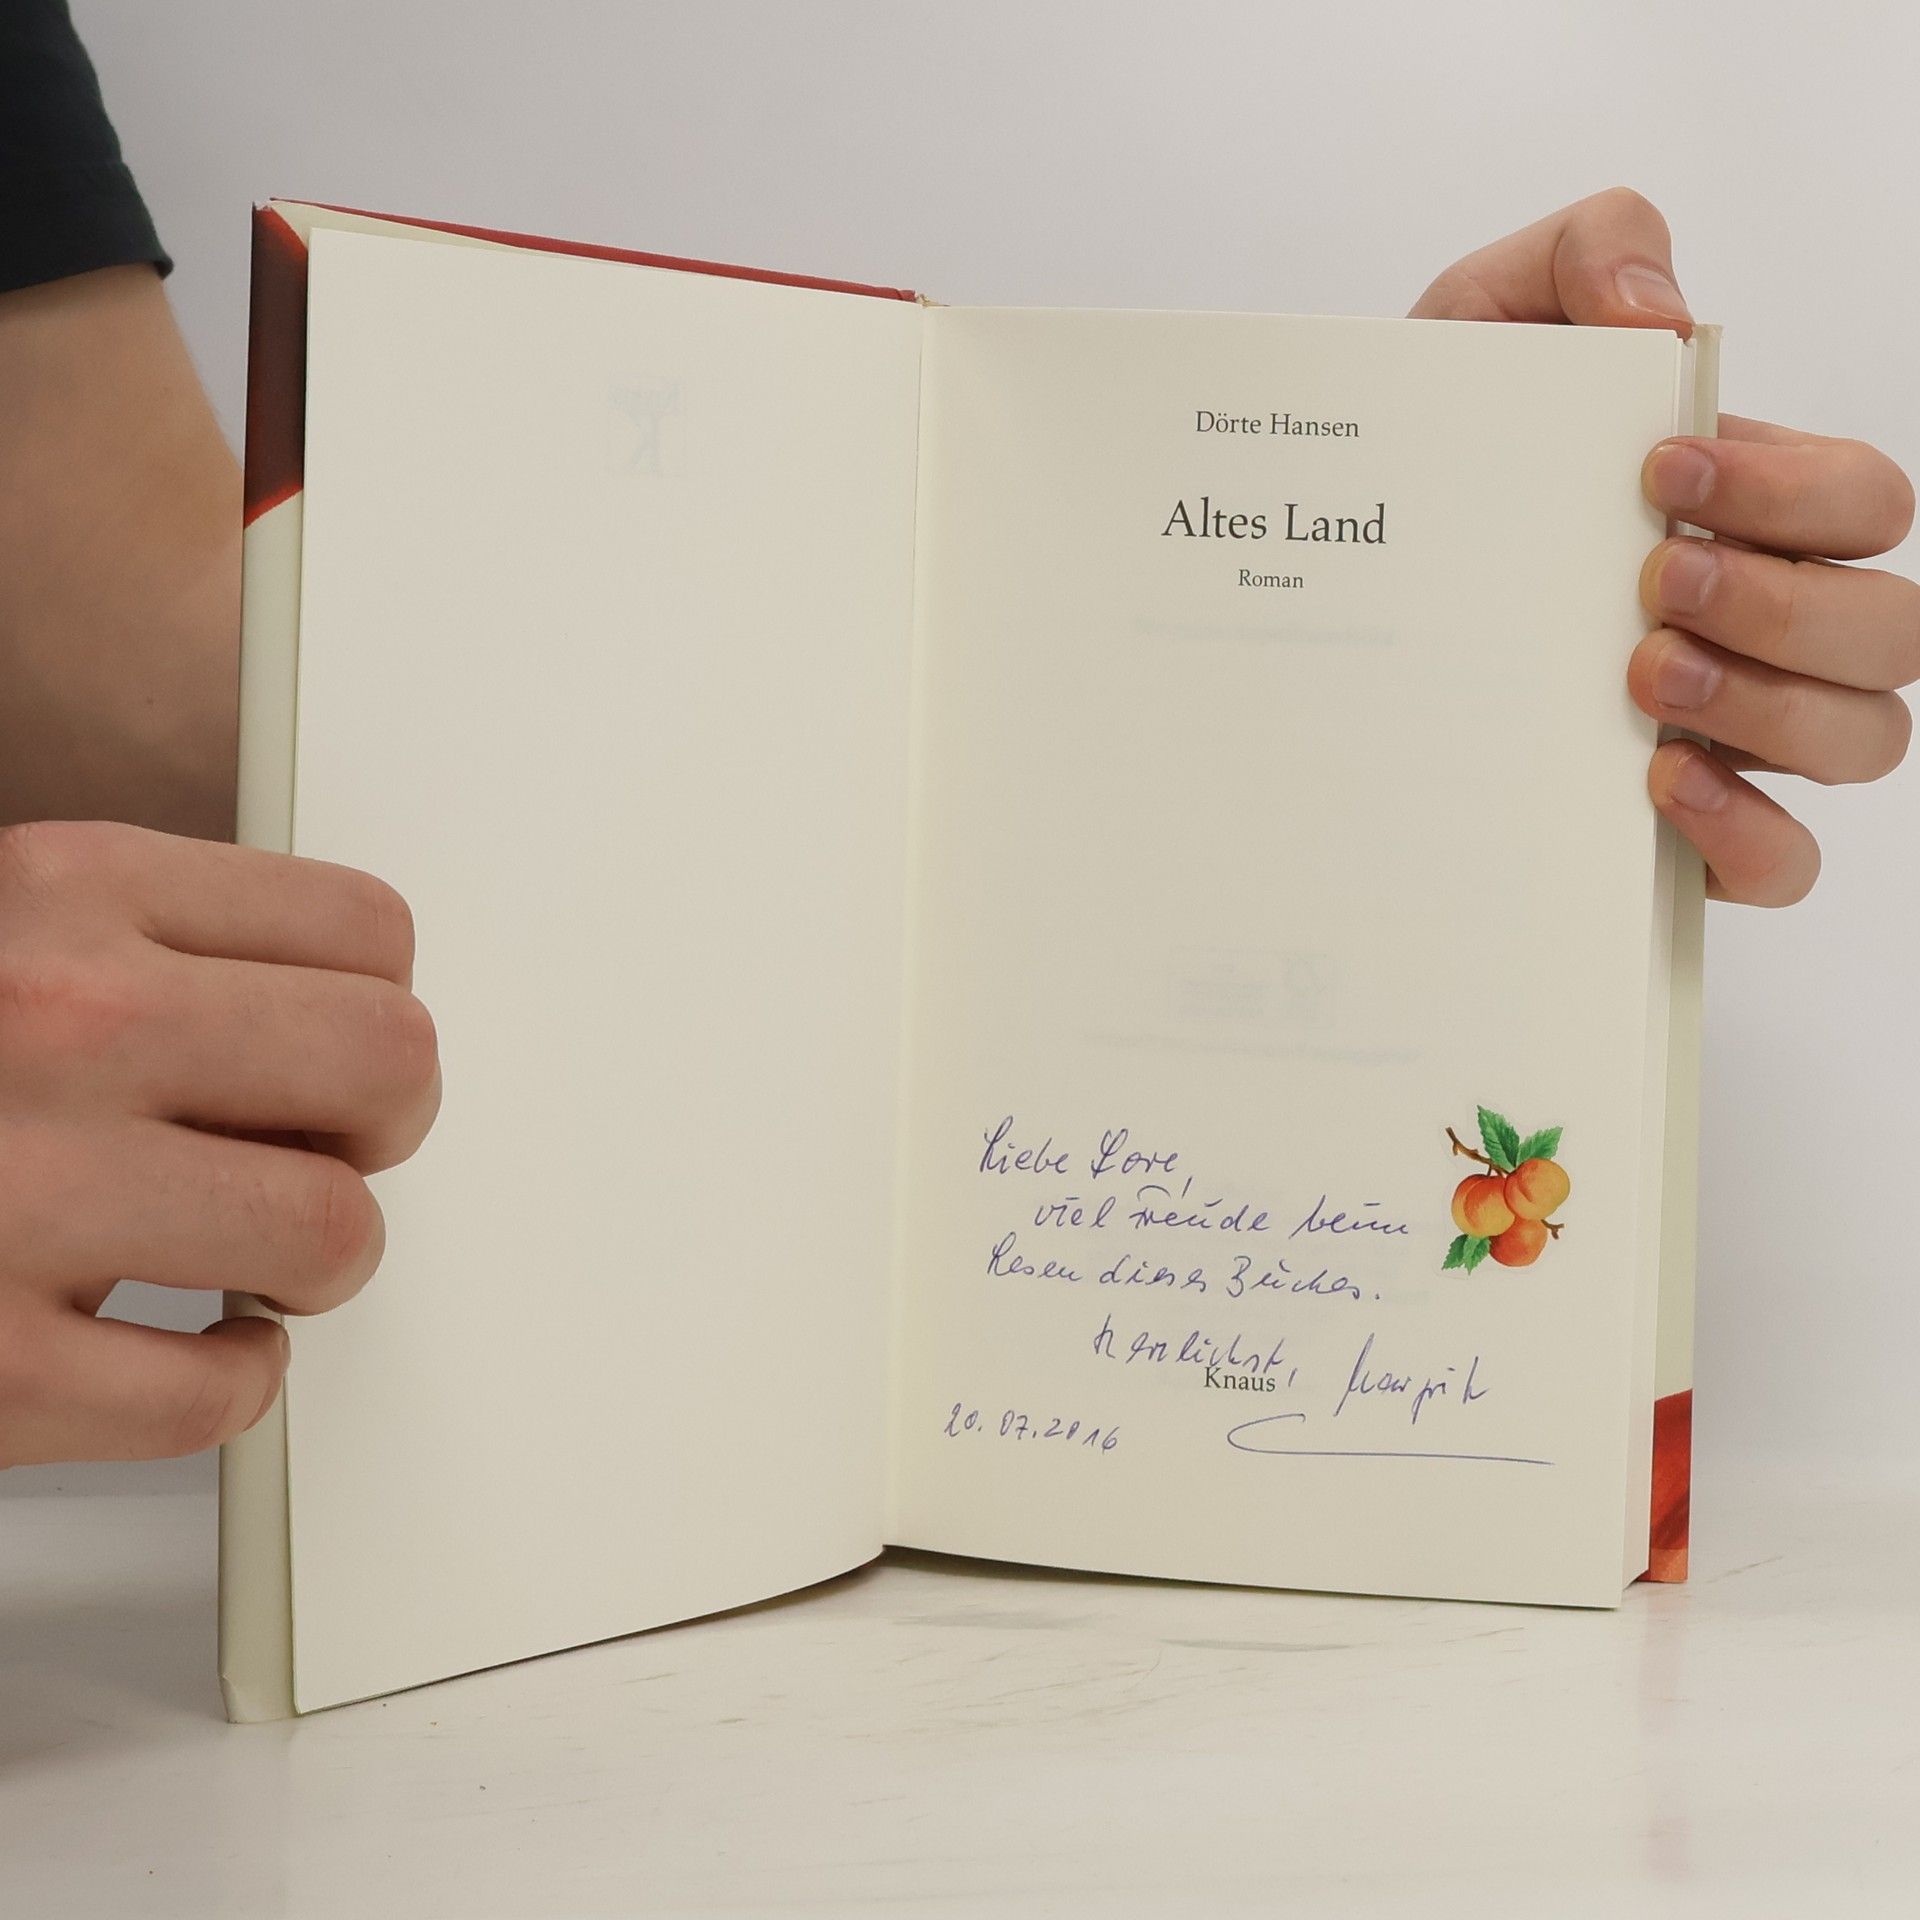 Dörte Hansen
Altes Land
Roman
Liebe Lore,
viel Freude beim
Lesen dieses Buches.
Herzlichst, Margrit
Knaus
20.07.2016